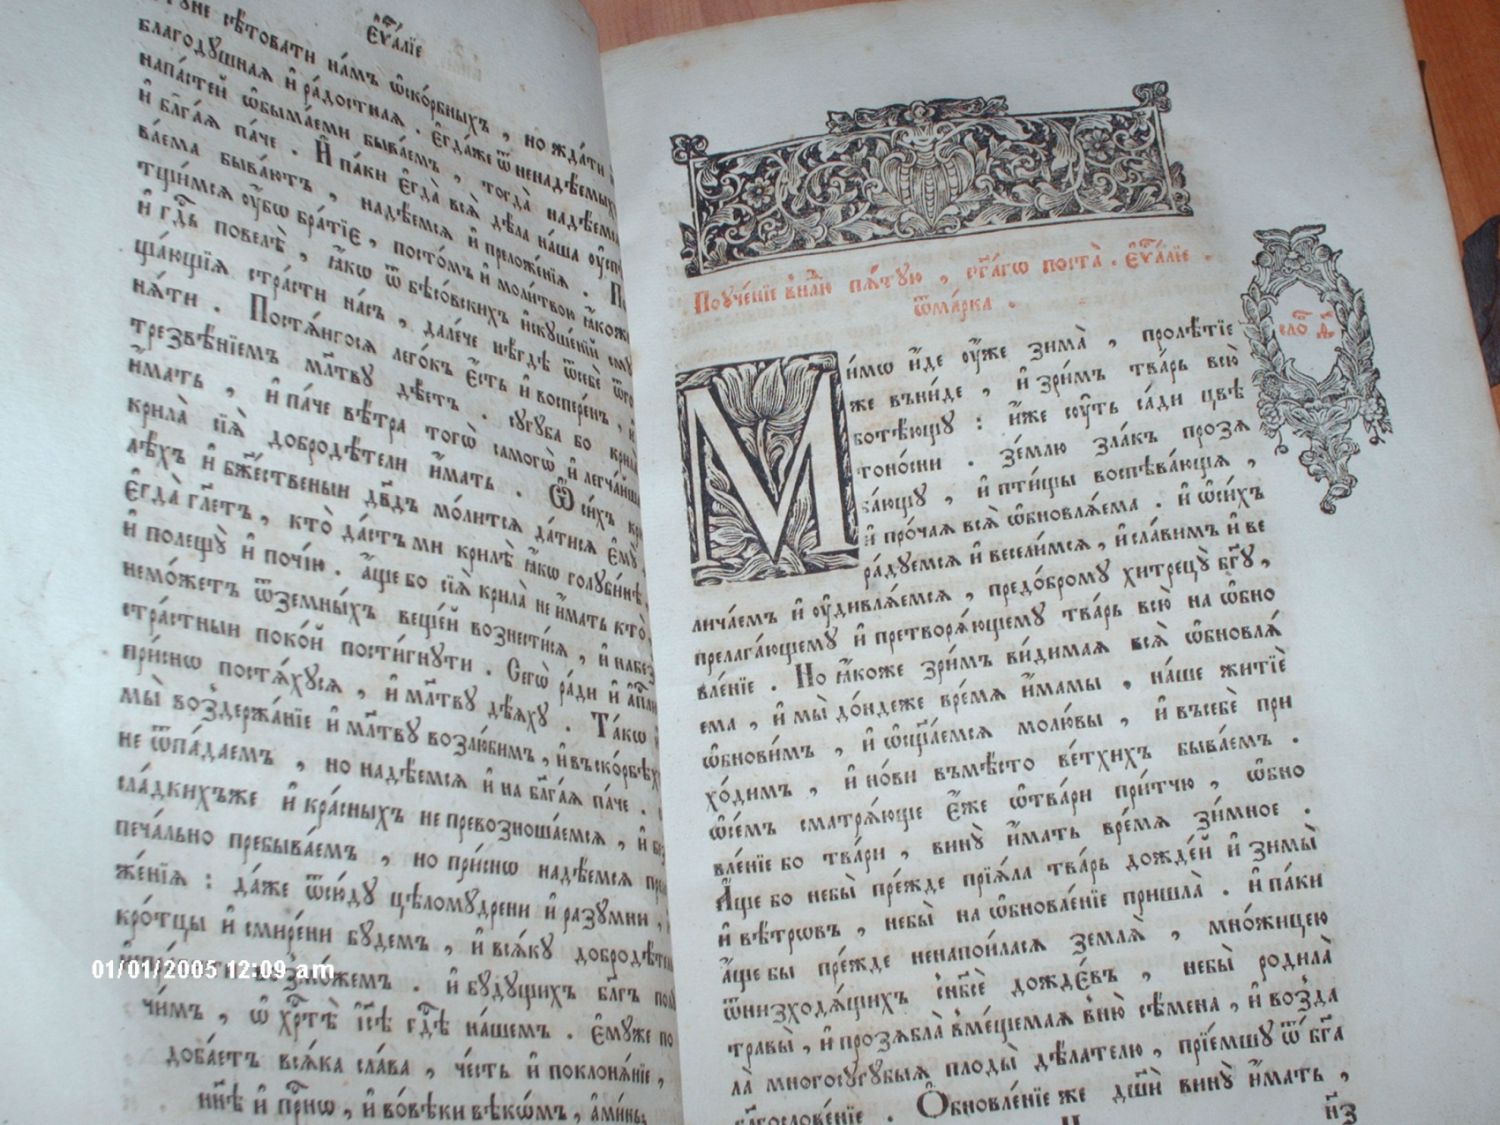 єѵⷢ҇алїе
тꙋне сѣ́товати на́мъ ѡ҆ско́рбныхъ , но жда́ти
благодꙋшная и҆ ра́достная . є҆гда́же ѿ ненадѣ́емыхъ
напа́стей ѡ҆быма́еми быва́емъ , тогда̀ надѣ́емсѧ
и҆ бл҃га́я па́че . И҆ па́ки є҆гда̀ всѧ̀ дѣ́ла на́ша
ва́ема быва́ютъ , надѣ́емсѧ и҆ преложе́нїѧ .
тщи́мсѧ ᲂу҆́бѡ бра́тїє , посто́мъ и҆ моли́твою ꙗ҆́коже
и҆ гдⷭ҇ь повелѣ̀ , ꙗ҆́кѡ ѿ бѣсо́вскихъ и҆скꙋше́нїй
ща́ющїѧ стра́сти на́съ , дале́че нѣ́гдѣ ѿсебѐ
нѧ́ти . Постѧ́нгосѧ лего́къ є҆́сть и҆ воспере́нъ ,
трезвѣ́нїемъ мл҃твꙋ дѣ́етъ . сꙋгꙋба бо крила̀
и҆́мать , и҆ па́че вѣ́тра тогѡ̀ самогѡ̀ и҆ легча́йша
крила̀ сїѧ̀ добродѣ́тели и҆́мать . Ѽ си́хъ
лѣ́хъ и҆ бж҃е́ственын дв҃дъ мо́литсѧ да́тисѧ є҆мꙋ̀
Є҆гда̀ гл҃етъ , кто̀ да́стъ ми крилѣ̀ ꙗ҆́кѡ голꙋби́нѣ ,
и҆ полещꙋ̀ и҆ почі́ю . а҆́ще бо сїѧ̀ крила̀ не и҆́мать кто̀ ,
немо́жетъ ѿзе́мныхъ веще́й вознести́сѧ , и҆
стра́стнын поко́й пости́гнꙋти . Сегѡ̀ ра́ди и҆
при́снѡ постѧ́хꙋсѧ , и҆ мл҃твꙋ дѣ́яхꙋ . Та́кѡ
мы̀ воздержа́нїе и҆ мл҃твꙋ возлю́бимъ , и҆ въско́рбѣхъ
не ѿпа́даемъ , но надѣ́емсѧ и҆ на бл҃га́ѧ па́че .
сла́дкихъже и҆ кра́сныхъ не превозноша́емсѧ , и҆
печа́льно пребыва́емъ , но при́снѡ надѣ́емсѧ
же́нїѧ : да́же ѿсю́дꙋ цѣломꙋ́дрени и҆ разꙋмни ,
кро́тцы и҆ смире́ни бꙋ́демъ , и҆ всѧ́кꙋ добродѣ́тель
возмо́жемъ . и҆ бꙋ́дꙋщихъ бл҃гъ
чи́мъ , ѡ҆ хрⷭ҇тѣ̀ і҆и҃сѣ гдⷭ҇ѣ на́шемъ . Є҆мꙋже по
доба́етъ всѧ́ка сла́ва , че́сть и҆ поклонѧ́нїе ,
нн҃ѣ и҆ при́снѡ , и҆ во́вѣки вѣкѡ́мъ , а҆ми́нь
01/01/2005 12:09 am
Поꙋче́нїе в҆нⷣлю пѧ́тꙋю , ст҃а́гѡ поста̀ . є҆ѵⷢ҇алїе .
ѿма́рка .
сло́ дⷧ҃
Ми́мѡ и҆́де ᲂу҆́же зима̀ , пролѣ́тїе
же въни́де , и҆ зри́мъ тва́рь всю̀
ботѣ́ющꙋ : и҆́же сꙋ́ть са́ди цвѣ
тоно́сни . зе́млю зла́къ прозѧ
ба́ющꙋ , и҆ пти́цы воспѣва́ющїѧ ,
и҆ про́чаѧ всѧ̀ ѡ҆бновлѧ́ема . и҆ ѡ҆си́хъ
ра́дꙋемсѧ и҆ весели́мсѧ , и҆ сла́вим и҆ ве
лича́емъ и҆ ᲂу҆дивлѧ́емсѧ , предо́бромꙋ хитрецꙋ̀ бг҃ꙋ ,
прелага́ющемꙋ и҆ претворѧ́ющемꙋ тва́рь всю̀ на ѡ҆бно
вле́нїе . Но ꙗ҆́коже зри́мъ ви́димаѧ всѧ̀ ѡ҆бновлѧ́
ема , и҆ мы̀ до́ндеже вре́мѧ и҆́мамы , на́ше житїѐ
ѡ҆бнови́мъ , и҆ ѡ҆сща́емсѧ молю́вы , и҆ въсебѐ при
хо́димъ , и҆ но́ви въмѣ́сто ве́тхихъ быва́емъ .
ѡ҆се́мъ сматрѧ́юще є҆́же ѿтва́ри при́тчю , ѡ҆бно
вле́нїе бо тва́ри , винꙋ̀ и҆́мать вре́мѧ зи́мное .
А҆́ще бо небы̀ пре́жде прїѧ́ла тва́рь дожде́й и҆ зимы̀
и҆ вѣ́трѡвъ , небы̀ на ѡ҆бновле́нїе пришла̀ . и҆ па́ки
а҆́ще бы пре́жде ненапои́ласѧ землѧ̀ , мно́жицею
ѿнизходѧ́щихъ с҆нб҃сѐ дожде́въ , небы̀ родила̀
травы̀ , и҆ прозѧбла̀ в҆мещемаѧ в҆ню̀ сѣ́мена , и҆ возда
ла̀ многосꙋгꙋ́быѧ плоды̀ дѣ́лателю , прїе́мшꙋ ѿ бг҃а
бл҃гослове́нїе . Ѻ҆бновле́нїе же дш҃ѝ винꙋ̀ и҆́мать ,
и҆з